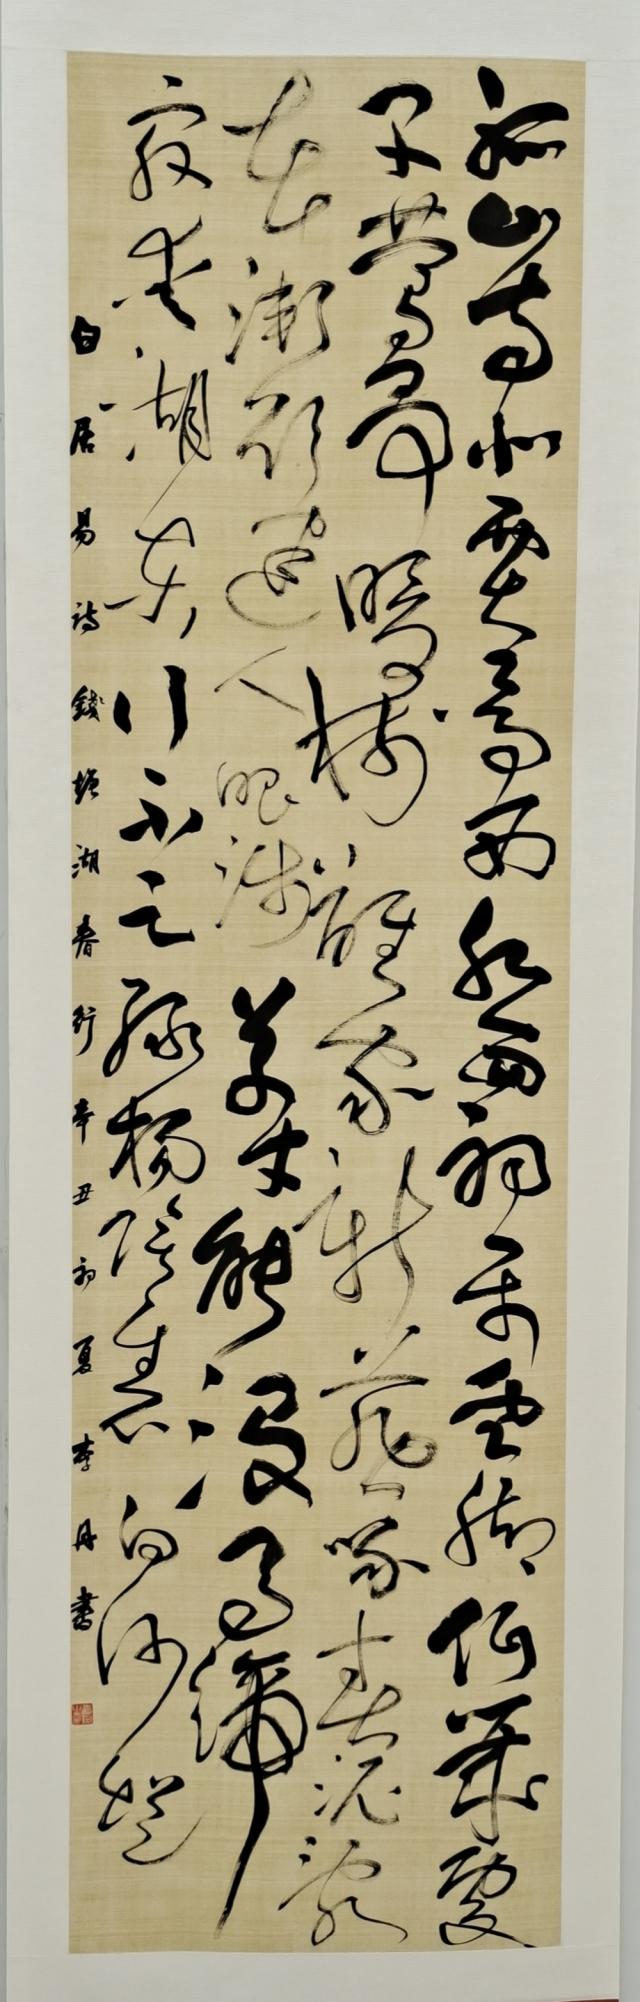 孤山寺北賈亭西水面初平雲脚低幾處
早鶯爭暖樹誰家新燕啄春泥亂
花漸欲迷人眼淺草才能没馬蹄
最愛湖東行不足綠楊陰裏白沙堤
白居易詩錢塘湖春行辛丑初夏李丹書